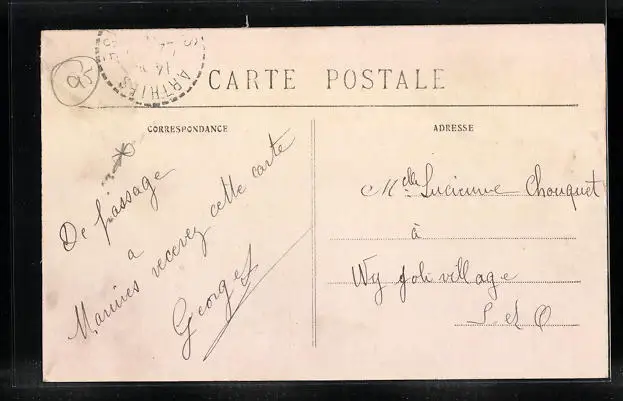 95
ARTHIES
CARTE POSTALE
CORRESPONDANCE
ADRESSE
De passage
a
Marines recevez cette carte
Georges
Mlle Lucienne Chouquet
à
Wy joli village
S et O